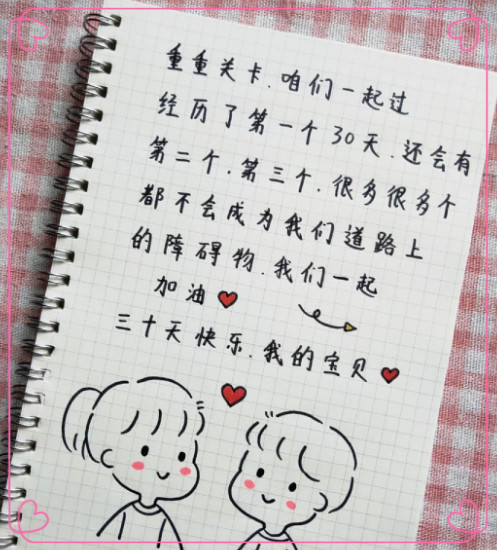 重重关卡.咱们一起过
经历了第一个30天.还会有
第二个.第三个.很多很多个
都不会成为我们道路上
的障碍物.我们一起
加油
三十天快乐.我的宝贝